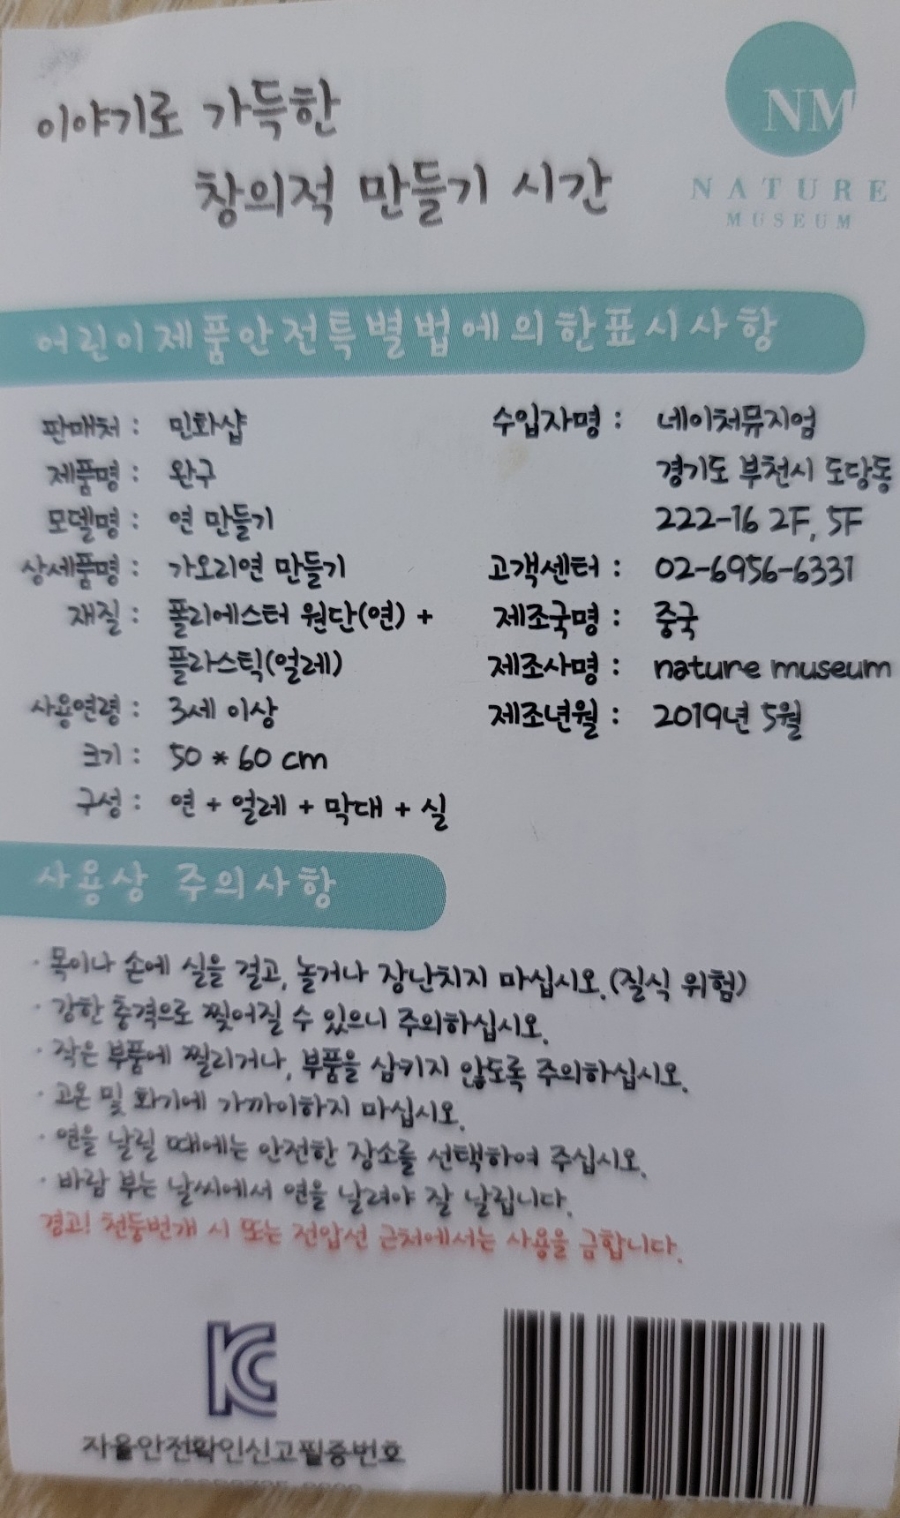 이야기로 가득한
창의적 만들기 시간
NM
NATURE
MUSEUM
어린이제품안전특별법에의한표시사항
판매처 : 민화샵
제품명 : 완구
모델명 : 연 만들기
상세품명 : 가오리연 만들기
재질 : 폴리에스터 원단(연) +
플라스틱(얼레)
사용연령 : 3세 이상
크기 : 50 * 60 cm
구성 : 연 + 얼레 + 막대 + 실
수입자명 : 네이처뮤지엄
경기도 부천시 도당동
222-16 2F, 5F
고객센터 : 02-6956-6331
제조국명 : 중국
제조사명 : nature museum
제조년월 : 2019년 5월
사용상 주의사항
· 목이나 손에 실을 걸고, 놀거나 장난치지 마십시오.(질식 위험)
· 강한 충격으로 찢어질 수 있으니 주의하십시오.
· 작은 부품에 찔리거나, 부품을 삼키지 않도록 주의하십시오.
· 고온 및 화기에 가까이하지 마십시오.
· 연을 날릴 때에는 안전한 장소를 선택하여 주십시오.
· 바람 부는 날씨에서 연을 날려야 잘 날립니다.
경고! 천둥번개 시 또는 전압선 근처에서는 사용을 금합니다.
KC
자율안전확인신고필증번호